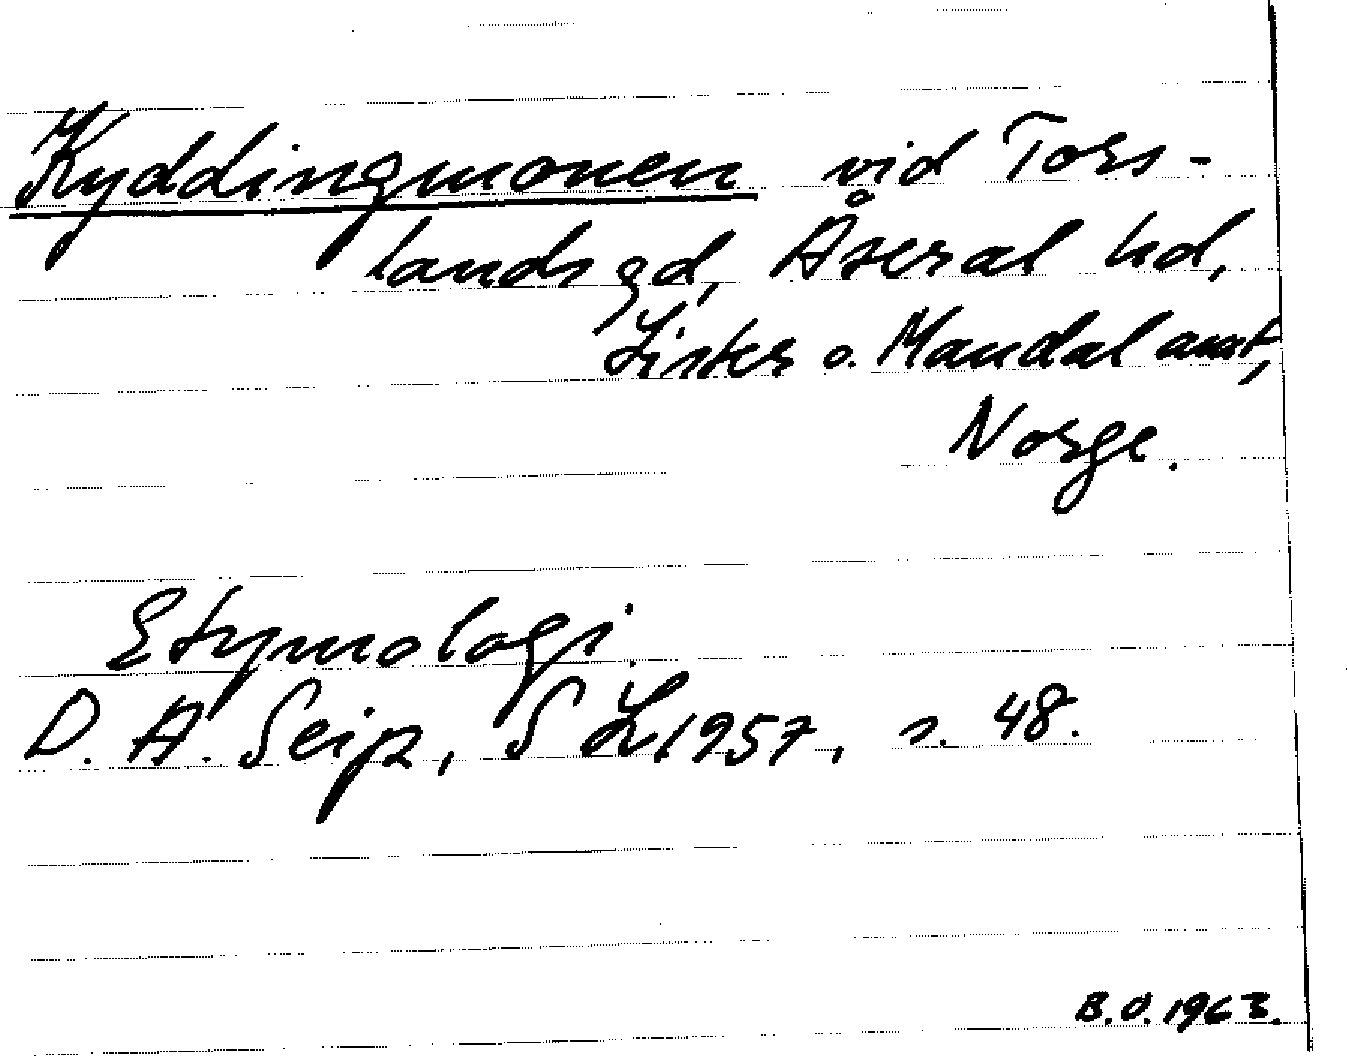 Kyddingmonen vid Tors-
landsgd, Åseral hd,
Lister o. Mandal amt,
Norge.
Etymologi
D. A. Seip, SL 1957, s. 48.
B.O. 1963.